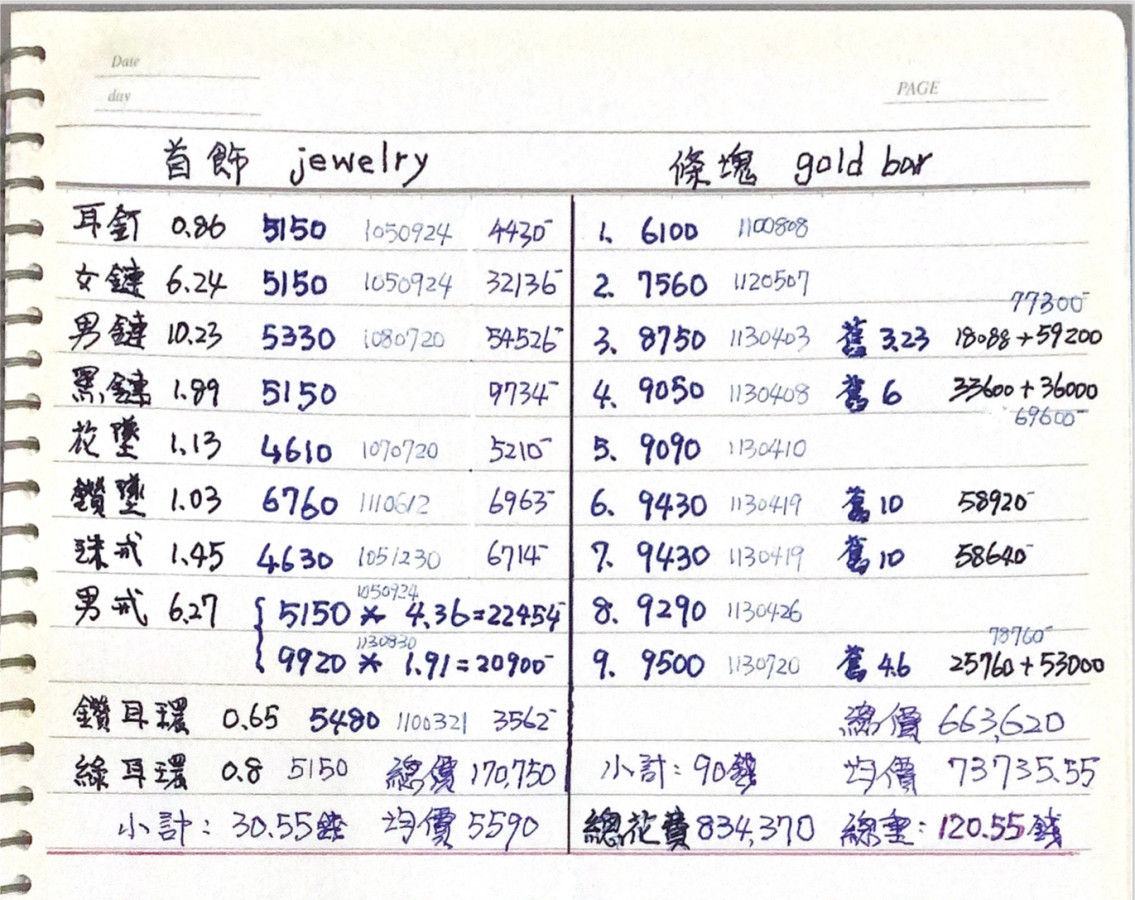 Date
day
PAGE
首飾 jewelry
耳釘 0.86 5150 1050924 4430-
女鏈 6.24 5150 1050924 32136-
男鏈 10.23 5330 1080720 54526-
黑鏈 1.89 5150 9734-
花墜 1.13 4610 1070720 5210-
鑽墜 1.03 6760 1110612 6963-
珠戒 1.45 4630 1051230 6714-
男戒 6.27 { 5150 * 4.36=22454-
1050924
9920 * 1.91=20900-
1130830
鑽耳環 0.65 5480 1100321 3562-
綠耳環 0.8 5150 總價 170,750
小計: 30.55錢 均價 5590
條塊 gold bar
1. 6100 1100808
2. 7560 1120507
77300-
3. 8750 1130403 舊 3.23 18088+59200
4. 9050 1130408 舊 6 33600+36000
69600-
5. 9090 1130410
6. 9430 1130419 舊 10 58920-
7. 9430 1130419 舊 10 58640-
8. 9290 1130426
78760-
9. 9500 1130720 舊 4.6 25760+53000
總價 663,620
小計: 90錢 均價 73735.55
總花費 834,370 總重: 120.55錢